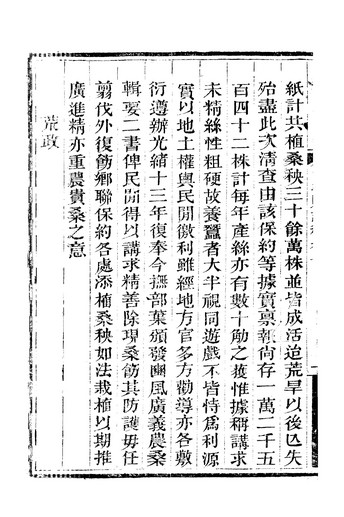 紙計共植桑秧三十餘萬株並皆成活迨荒旱以後亡失
殆盡此次淸查由該保約等據實稟報尙存一萬二千五
百四十二株計每年產絲亦有數十觔之獲惟據稱講求
未精絲性粗硬故養蠶者大半視同遊戲不皆恃爲利源
實以地土權輿民閒徵利雖經地方官多方勸導亦各敷
衍遵辦光緒十三年復奉今撫部葉頒發豳風廣義農桑
輯要二書俾民閒得以講求精善除現桑飭其防護毋任
翦伐外復飭鄉聯保約各處添植桑秧如法栽植以期推
廣進精亦重農貴桑之意
荒政